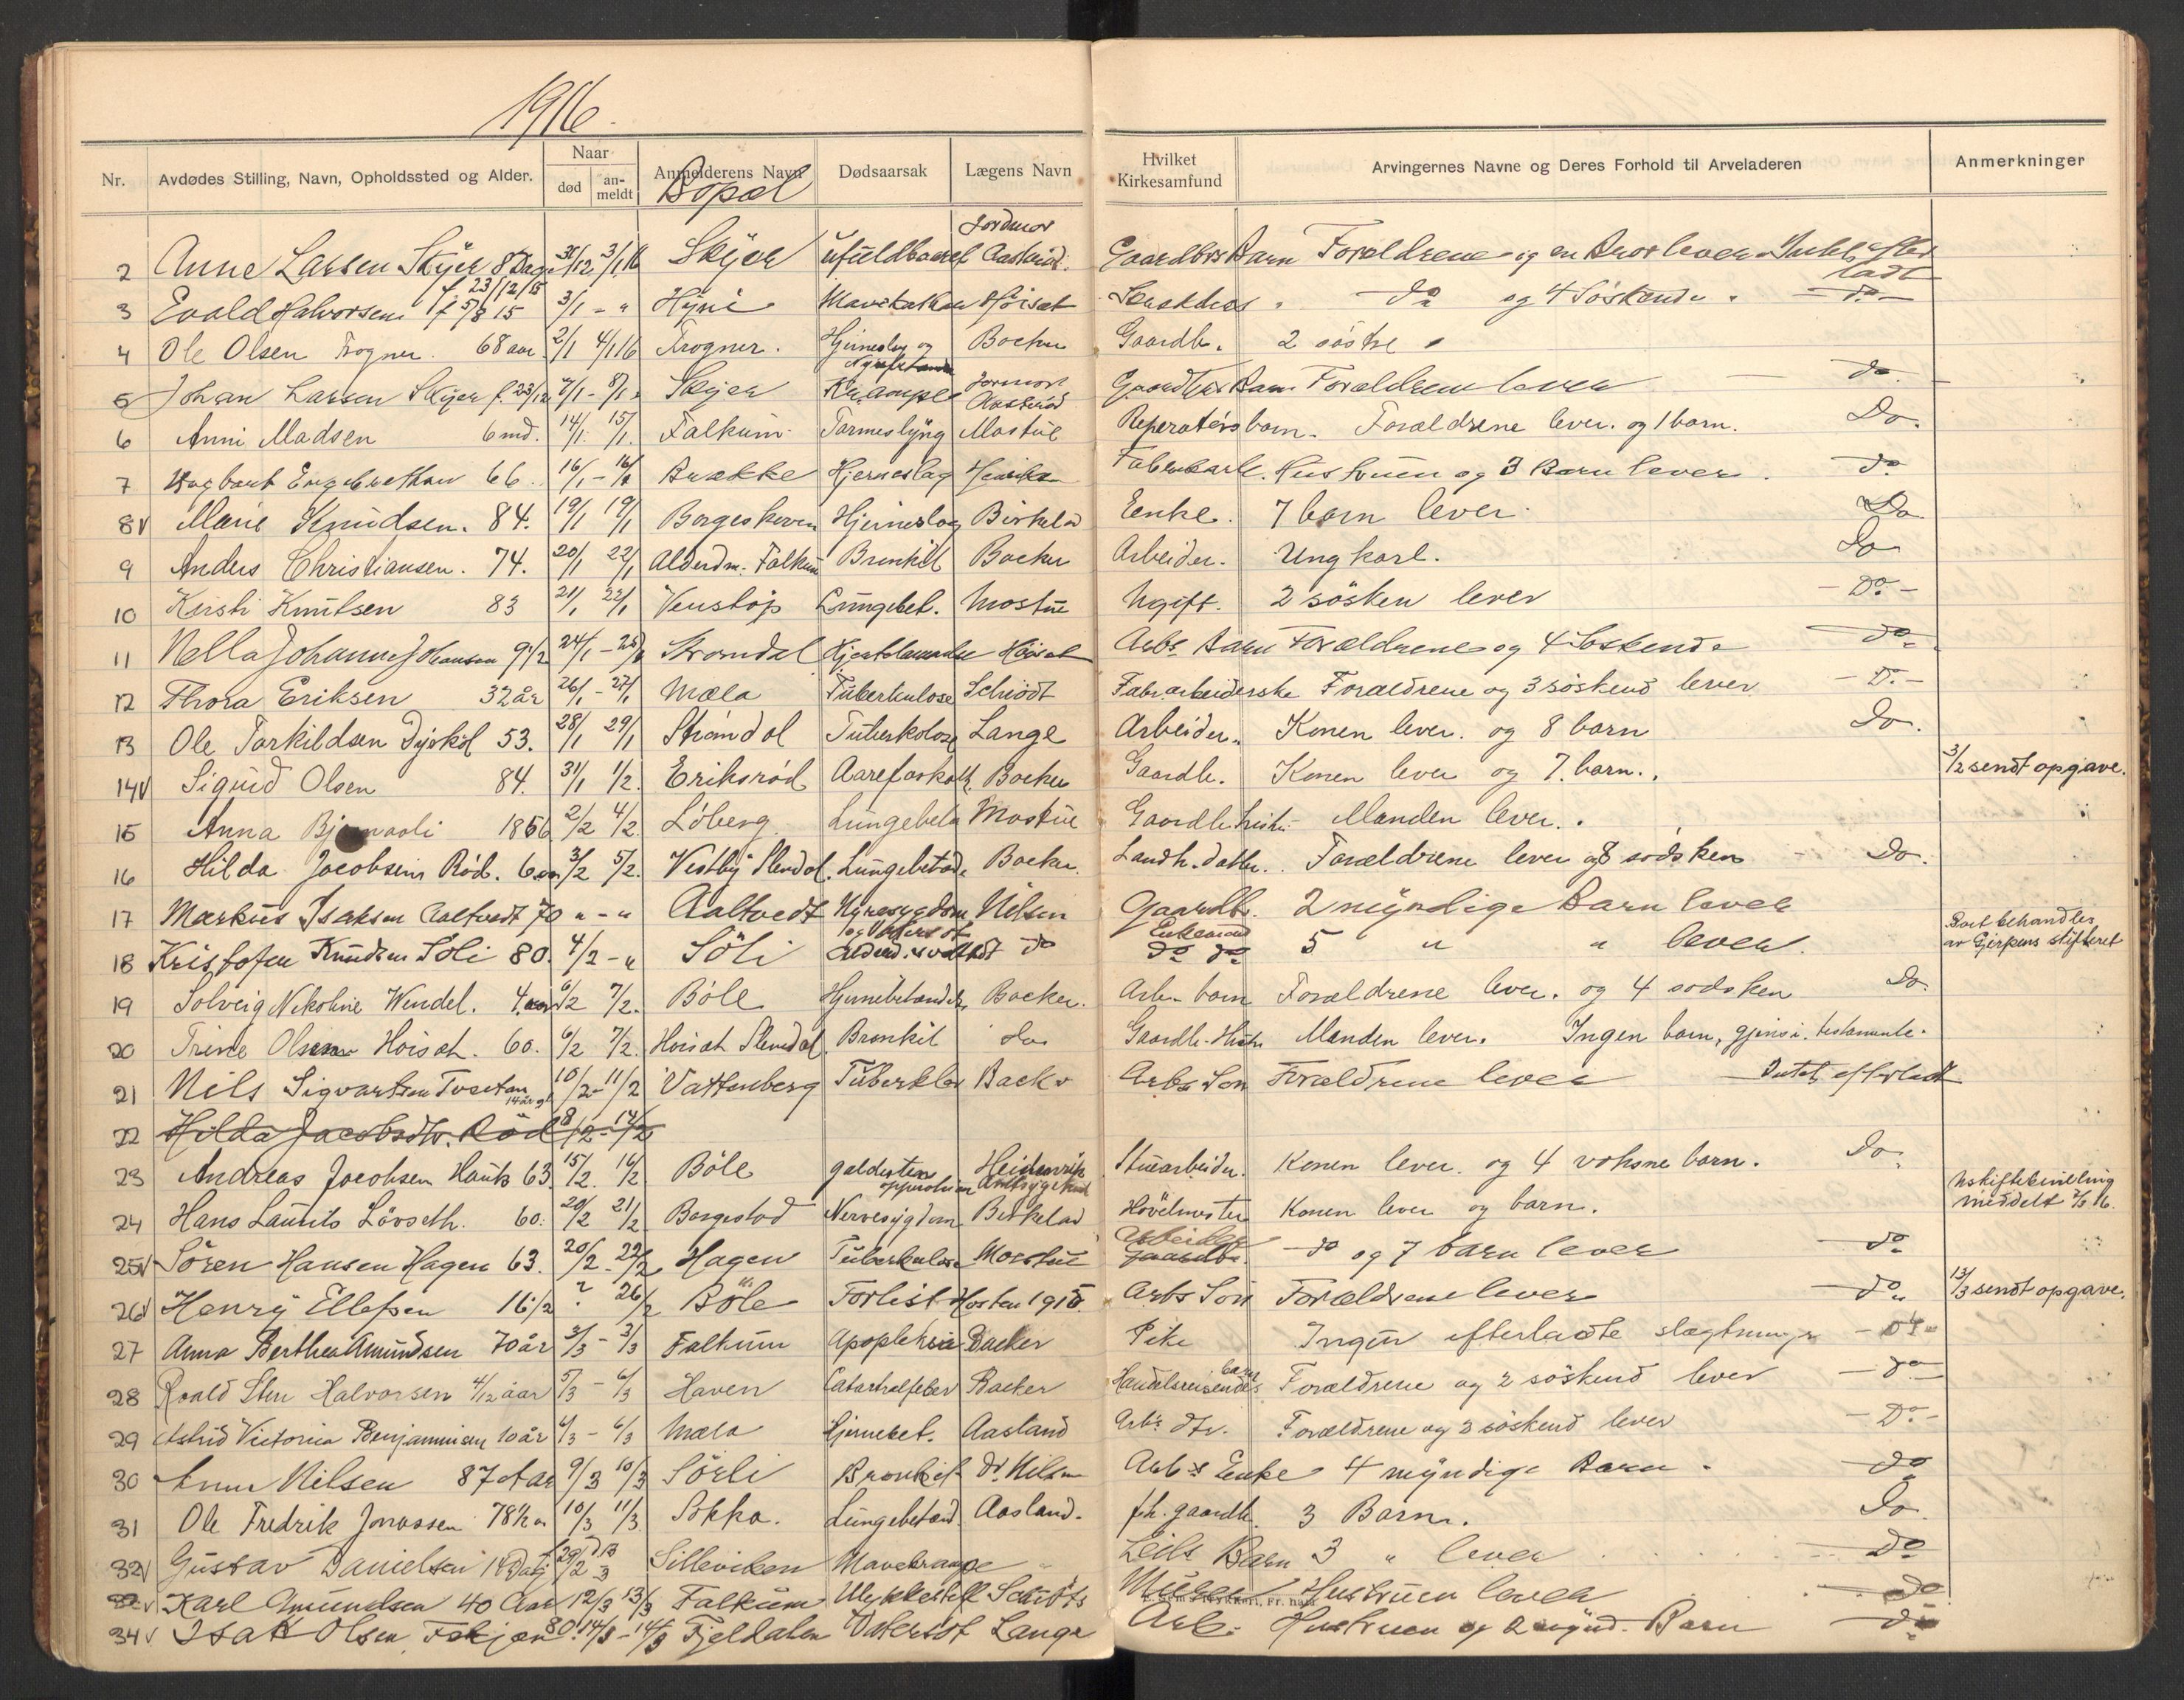 1916.
Nr. Avdødes Stilling, Navn, Opholdssted og Alder. Naar død an-meldt Anmelderens Navn Bopæl Dødsaarsak Lægens Navn Hvilket Kirkesamfund Arvingernes Navne og Deres Forhold til Arveladeren Anmerkninger
2 Anne Larsen Skyer 8 Dage 31/12 3/1 16 Skyer ufuldbaaret Jordmor Gaardbrs Barn Forældrene og en Bror lever Intet efterladt
f 23/12/15
3 Evald Halvorsen f 5/8 15 3/1 - " Hyni Høisæt do og 4 Söskende do
4 Ole Olsen Frogner. 68 aar 2/1 4/1 16 Frogner. Hjerneslag og Backer Gaardb. 2 söstre
5 Johan Larsen Skyer f. 23/12 7/1 - 8/1 Skyer Krampe Jormor Gaardbrs Barn Forældrene lever do
6 Anni Madsen 6 md. 14/1 15/1 Falkum Tarmeslyng Mostue Reperatørs barn. Forældrene lever. og 1 barn. Do.
7 Dagbart Engebrethsen 66. 16/1 - 16/1 Brække Hjerneslag Fabrikarb. Hustruen og 3 Barn lever. do
8 V Marie Knudsen. 84. 19/1 19/1 Borgeskoven Hjerneslag Birkeland Enke. 7 barn lever. Do
9 Anders Christiansen. 74. 20/1 22/1 Alderdm. Falkum Bronkit Backer Arbeider. Ungkarl. Do
10 Kirsti Knutsen 83 21/1 22/1 Venstøp Lungebet. Mostue Ugift. 2 søsken lever - Do -
11 Nella Johanne Johansen 9 1/2 24/1 - 25/1 Strømdal Høisæt Arbs Barn Forældrene og 4 Söskende do
12 Thora Eriksen 32 år 26/1 - 27/1 Mæla Tuberkulose Schiødt Fabrarbeiderske Forældrene og 3 söskend lever - D. -
13 Ole Torkildsen Dyrkol 53. 28/1 29/1 Strömdal Tuberkolose Lange Arbeider. Konen lever. og 8 barn Do.
14 V Sigurd Olsen 84. 31/1 1/2. Eriksrød Aareforkalk. Backer Gaardb. Konen lever og 7. barn. 3/2 sendt opgave.
15 Anna 1856 2/2 4/2. Löberg Lungebet. Mostue Gaardb. hustru Manden lever.
16 Hilda Jacobsen Röd. 6 3/2 5/2. Vestby Slemdal. Lungebetænd. Backer. Landh. datter. Forældrene lever og 8 södsken Do.
17 Markus Isaksen Aaltvedt 70 " - " Aaltvedt Nyresygdom Nilsen Gaardb. 2 myndige Barn lever
18 Kristofer Knudsen Söli 80. 4/2 - " Söli do Enkemand do do 5 " " lever. Boet behandles av Gjerpens skifteret
19 Solveig Nekoline Wendel. 4 6/2 7/2. Böle Hjernebetændels Backer. Arb. barn Forældrene lever. og 4 södsken Do.
20 Trine Olsen Hoisæt. 60. 6/2 7/2. Hoisæt Slemdal. Bronkit do Gaardb. Hustr. Manden lever. Ingen barn, gjens. testamente.
21 Nils Sigvartsen Tveitan 14 år gl 10/2 - 11/2 Vattenberg Tuberklos Backer Arbs Sön Forældrene lever Intet efterladt
22 Hilda Jacobsdtr. Röd 8/2 - 14/2
23 Andreas Jacobsen Hauk 63. 15/2. 16/2 Böle galdesten opperation Heidenrik Amtsygehus Stuearbeider. Konen lever. og 4 voksne barn. Do.
24 Hans Laurits Lövseth. 60. 20/2 21/2 Borgestad Nervesygdom Birkeland Hövelmester Konen lever og barn. Uskiftebevilling meddelt 7/3 16.
25 V Sören Hansen Hagen 63. 20/2 - 22/2 Hagen Tuberkulose Mostue Arbeider Gaardbr. do og 7 barn lever do
26 V Henry Ellefsen 16 1/2 ? 26/2 Böle Forlist Hosten 1915. Arbs Sön Forældrene lever do 13/3 sendt opgave.
27 Anna Berthea Amundsen 70 år 3/3 - 3/3 Falkum Apopleksie Backer Pike Ingen efterladte slægtninge - do -
28 Roald Sten Halvorsen 4/12 aar 5/3 - 6/3 Haven Catarhalfeber Backer Handelsreisendes barn Forældrene og 2 söskend lever - do
29 Astrid Victoria Benjaminsen 10 år 6/3 - 6/3 Mæla Hjernebet. Aasland Arbs dtr. Forældrene og 3 söskend lever - Do -
30 Anne Nilsen 87 Aar 9/3 10/3 Sörli Bronkit Dr. Nilsen Arb's Enke 4 myndige Barn. do
31 Ole Fredrik Jonassen 78 1/2 10/3 11/3 Lungebetænd. Aasland. fh. gaardb. 3 Barn. Do
32 V Gustav Danielsen 14 Dag 29/2 13/3 Silleviken Mavekrampe Leils Barn 3 " lever do
V Karl Amundsen 40 Aar 12/3 13/3 Falkum Ulykkestilf Schiøts Murer Hustruen lever do
34 V Isak Olsen 80. 14/3 - 14/3 Fjeldalen Lange Arb. Hustruen og 2 mynd. Barn do